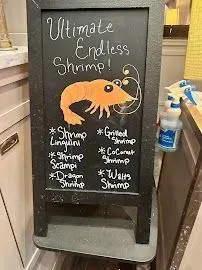 Ultimate
Endless
Shrimp!
* Shrimp
Linguini
* Shrimp
Scampi
* Dragon
Shrimp
* Grilled
Shrimp
* CoConut
Shrimp
* Walts
Shrimp